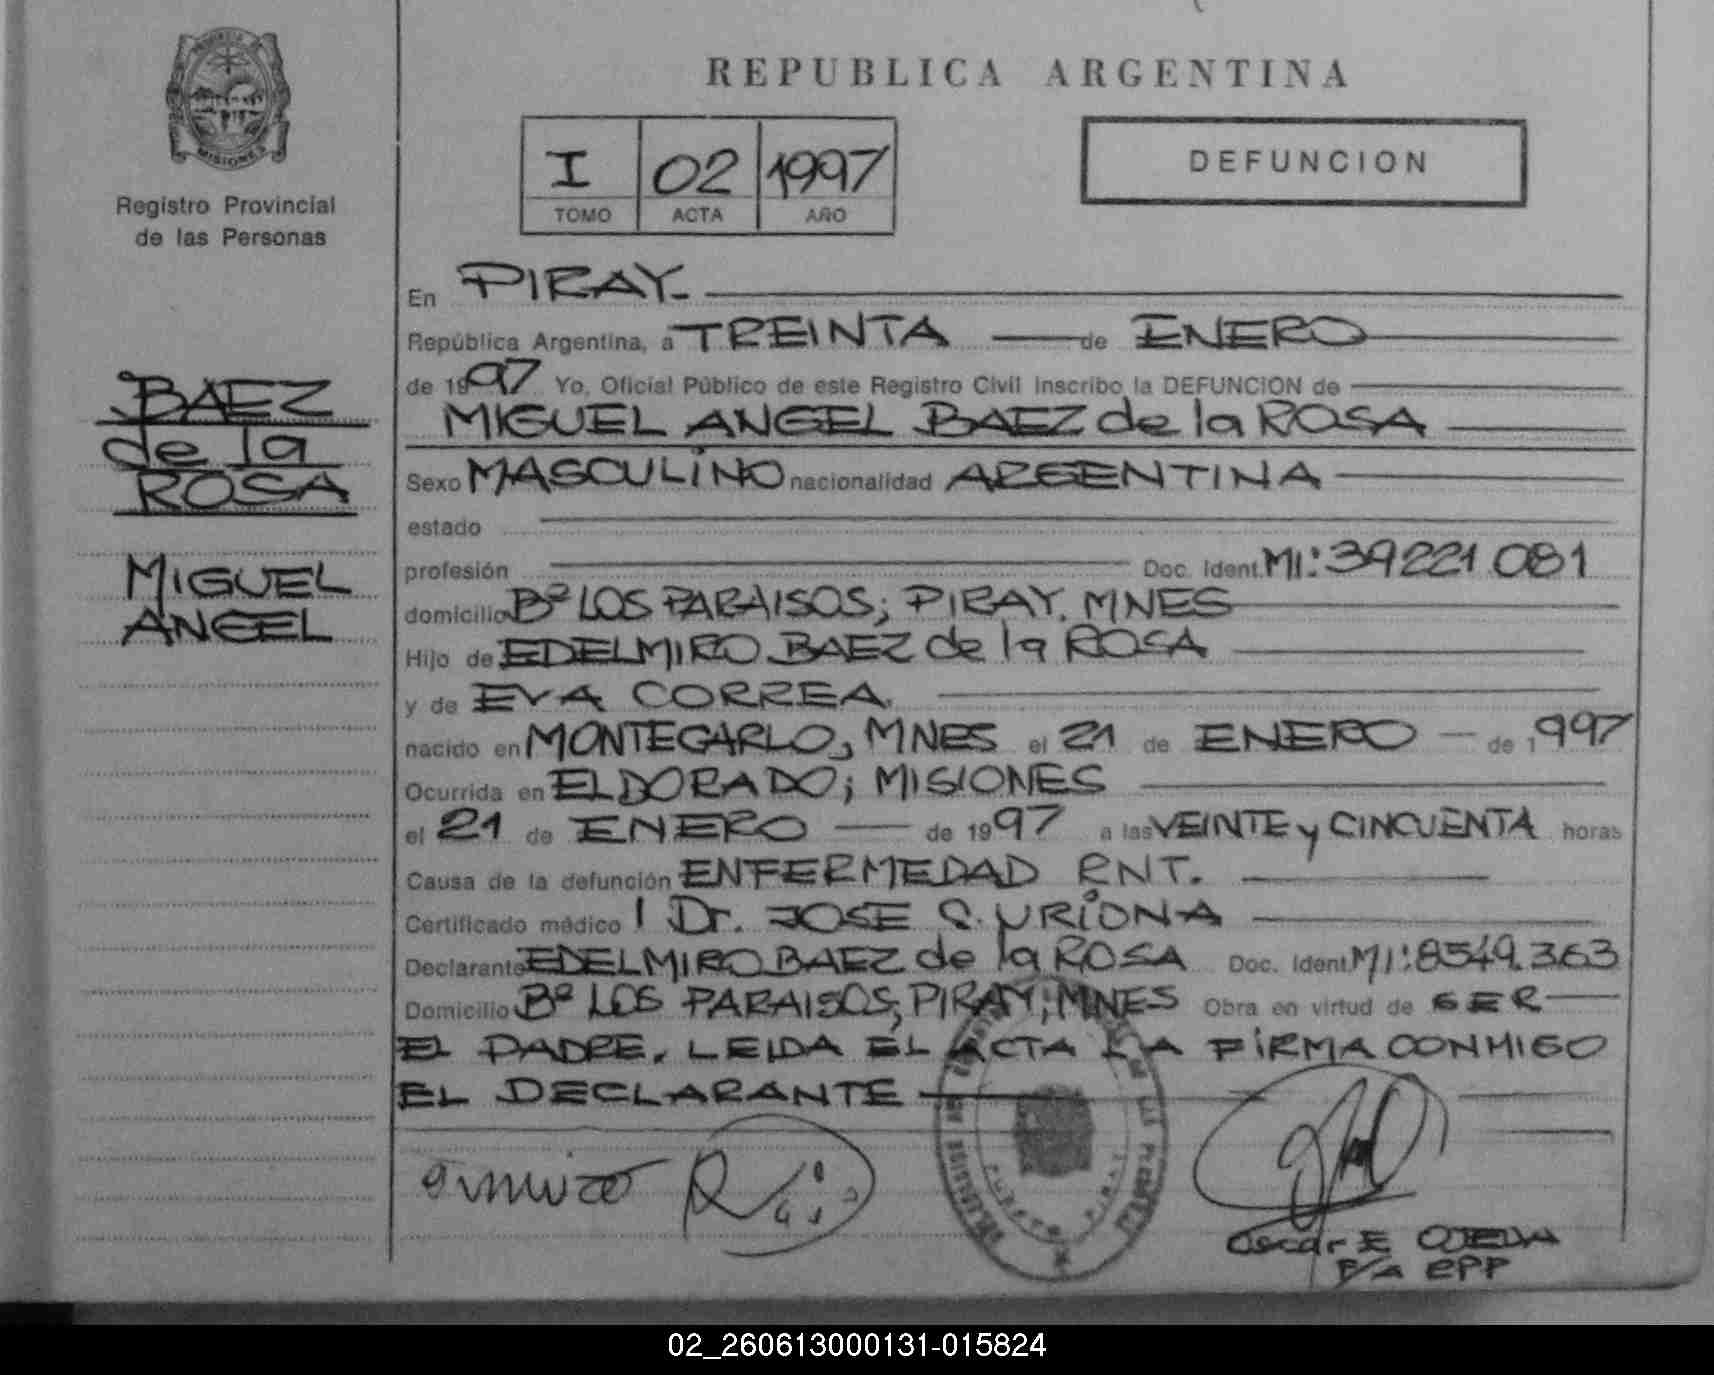 PROVINCIA DE
MISIONES
Registro Provincial
de las Personas
BAEZ
de la
ROSA
MIGUEL
ANGEL
REPUBLICA ARGENTINA
I 02 1997
TOMO ACTA AÑO
DEFUNCION
En PIRAY.
República Argentina, a TREINTA de ENERO
de 1997 Yo, Oficial Público de este Registro Civil inscribo la DEFUNCION de
MIGUEL ANGEL BAEZ de la ROSA
Sexo MASCULINO nacionalidad ARGENTINA
estado
profesión Doc. Ident. MI: 39221 081
domicilio Bº LOS PARAISOS; PIRAY. MNES
Hijo de EDELMIRO BAEZ de la ROSA
y de EVA CORREA.
nacido en MONTECARLO, MNES el 21 de ENERO de 1997
Ocurrida en ELDORADO; MISIONES
el 21 de ENERO de 1997 a las VEINTE y CINCUENTA horas
Causa de la defunción ENFERMEDAD RNT.
Certificado médico Dr. JOSE S. URIONA
Declarante EDELMIRO BAEZ de la ROSA Doc. Ident. MI: 8549.363
Domicilio Bº LOS PARAISOS, PIRAY, MNES Obra en virtud de SER
EL PADRE. LEIDA EL ACTA LA FIRMA CONMIGO
EL DECLARANTE
Oscar E OJEDA
P/A RPP
02_260613000131-015824